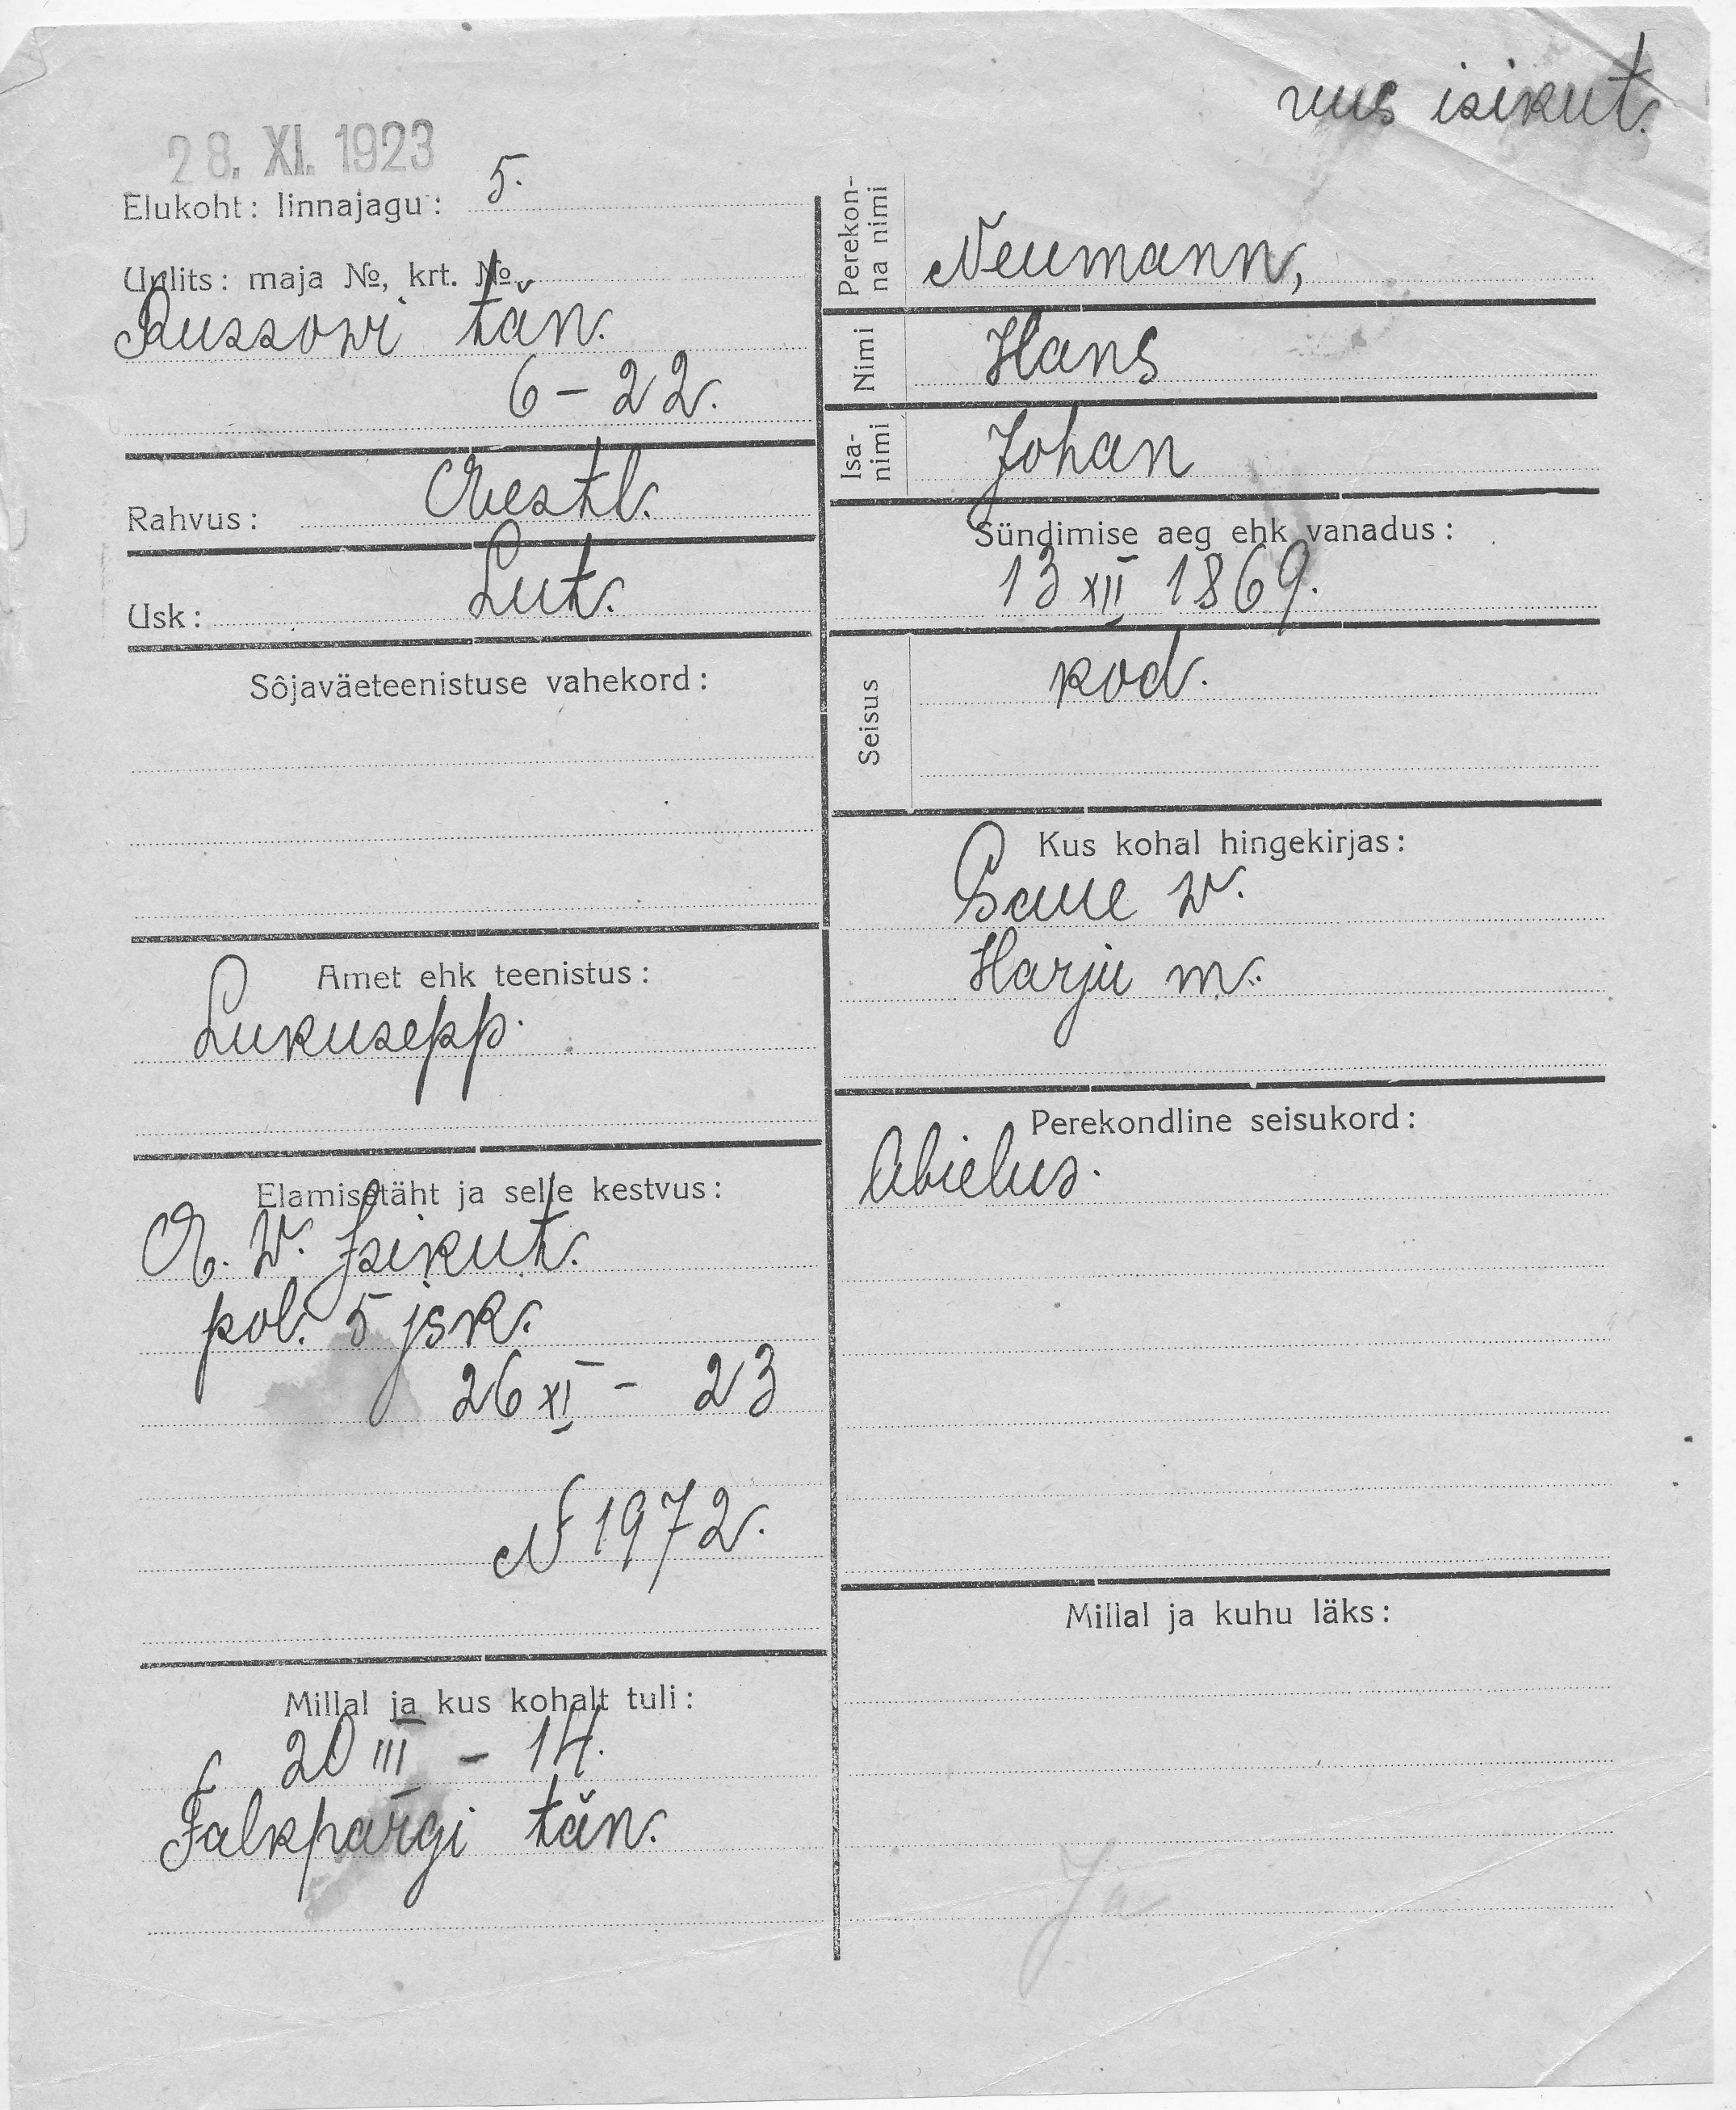 uus isikut.
28. XI. 1923
Elukoht: linnajagu: 5.
Uulits: maja №, krt. №
Russowi tän.
6 - 22.
Rahvus: Eestl.
Usk: Lut.
Sõjaväeteenistuse vahekord:
Amet ehk teenistus:
Lukusepp.
Elamisetäht ja selle kestvus:
E. W. Isikut.
pol. 5 jsk.
26 XI - 23
N 1972.
Millal ja kus kohalt tuli:
20 III - 14.
Falkpargi tän.
Perekonna nimi Neumann,
Nimi Hans
Isanimi Johan
Sündimise aeg ehk vanadus:
13 XII 1869.
Seisus kod.
Kus kohal hingekirjas:
Saue w.
Harju m.
Perekondline seisukord:
Abielus.
Millal ja kuhu läks:
Ja